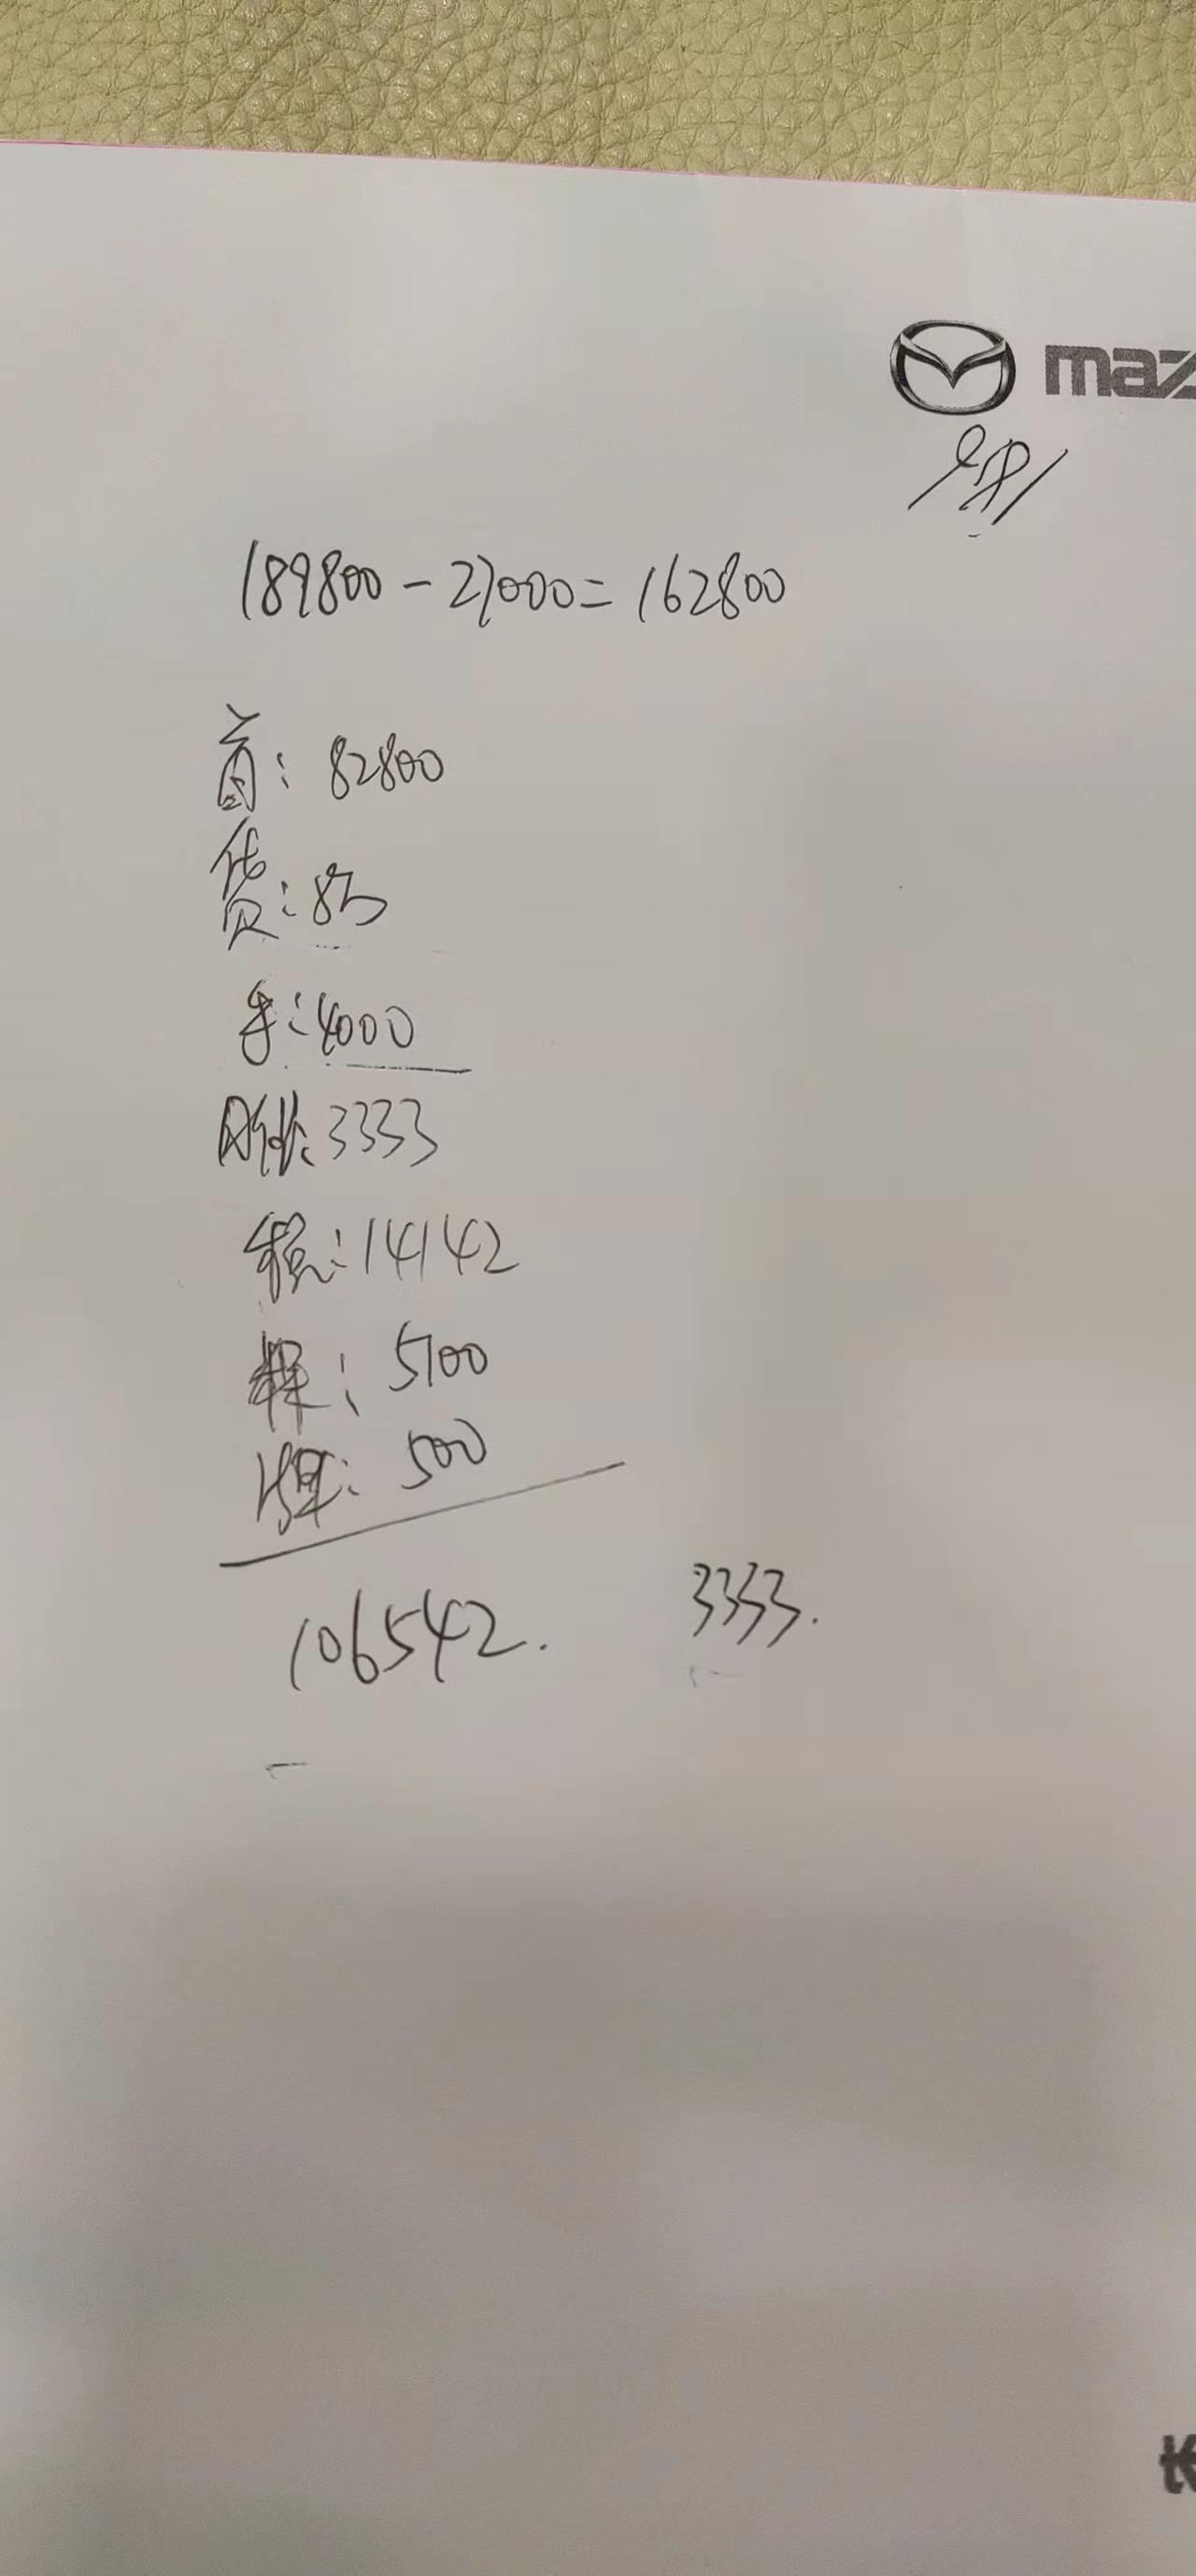 maz
189800-27000=162800
首: 82800
贷: 8万
手: 4000
月供: 3333
税: 14142
保: 5100
牌: 500
106542.
3333.